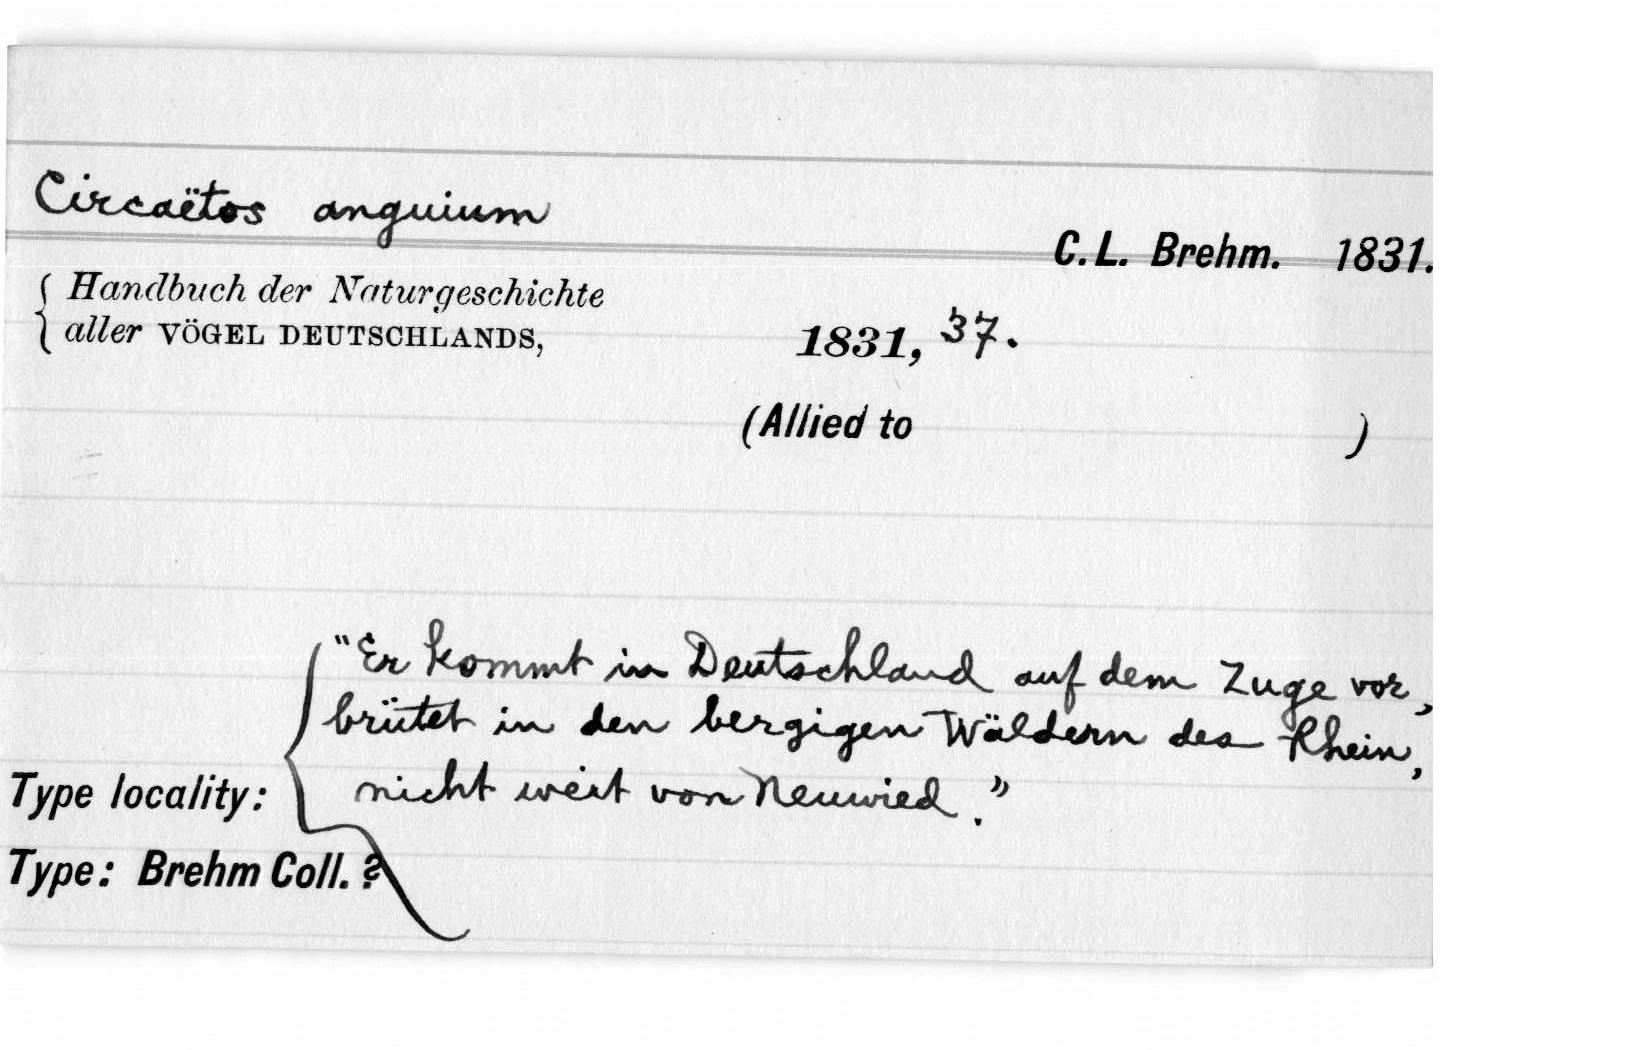 Circaëtos anguium
C.L. Brehm. 1831.
Handbuch der Naturgeschichte
aller VÖGEL DEUTSCHLANDS, 1831, 37.
(Allied to )
"Er kommt in Deutschland auf dem Zuge vor,
brütet in den bergigen Wäldern des Rhein,
Type locality: nicht weit von Neuwied."
Type: Brehm Coll. ?